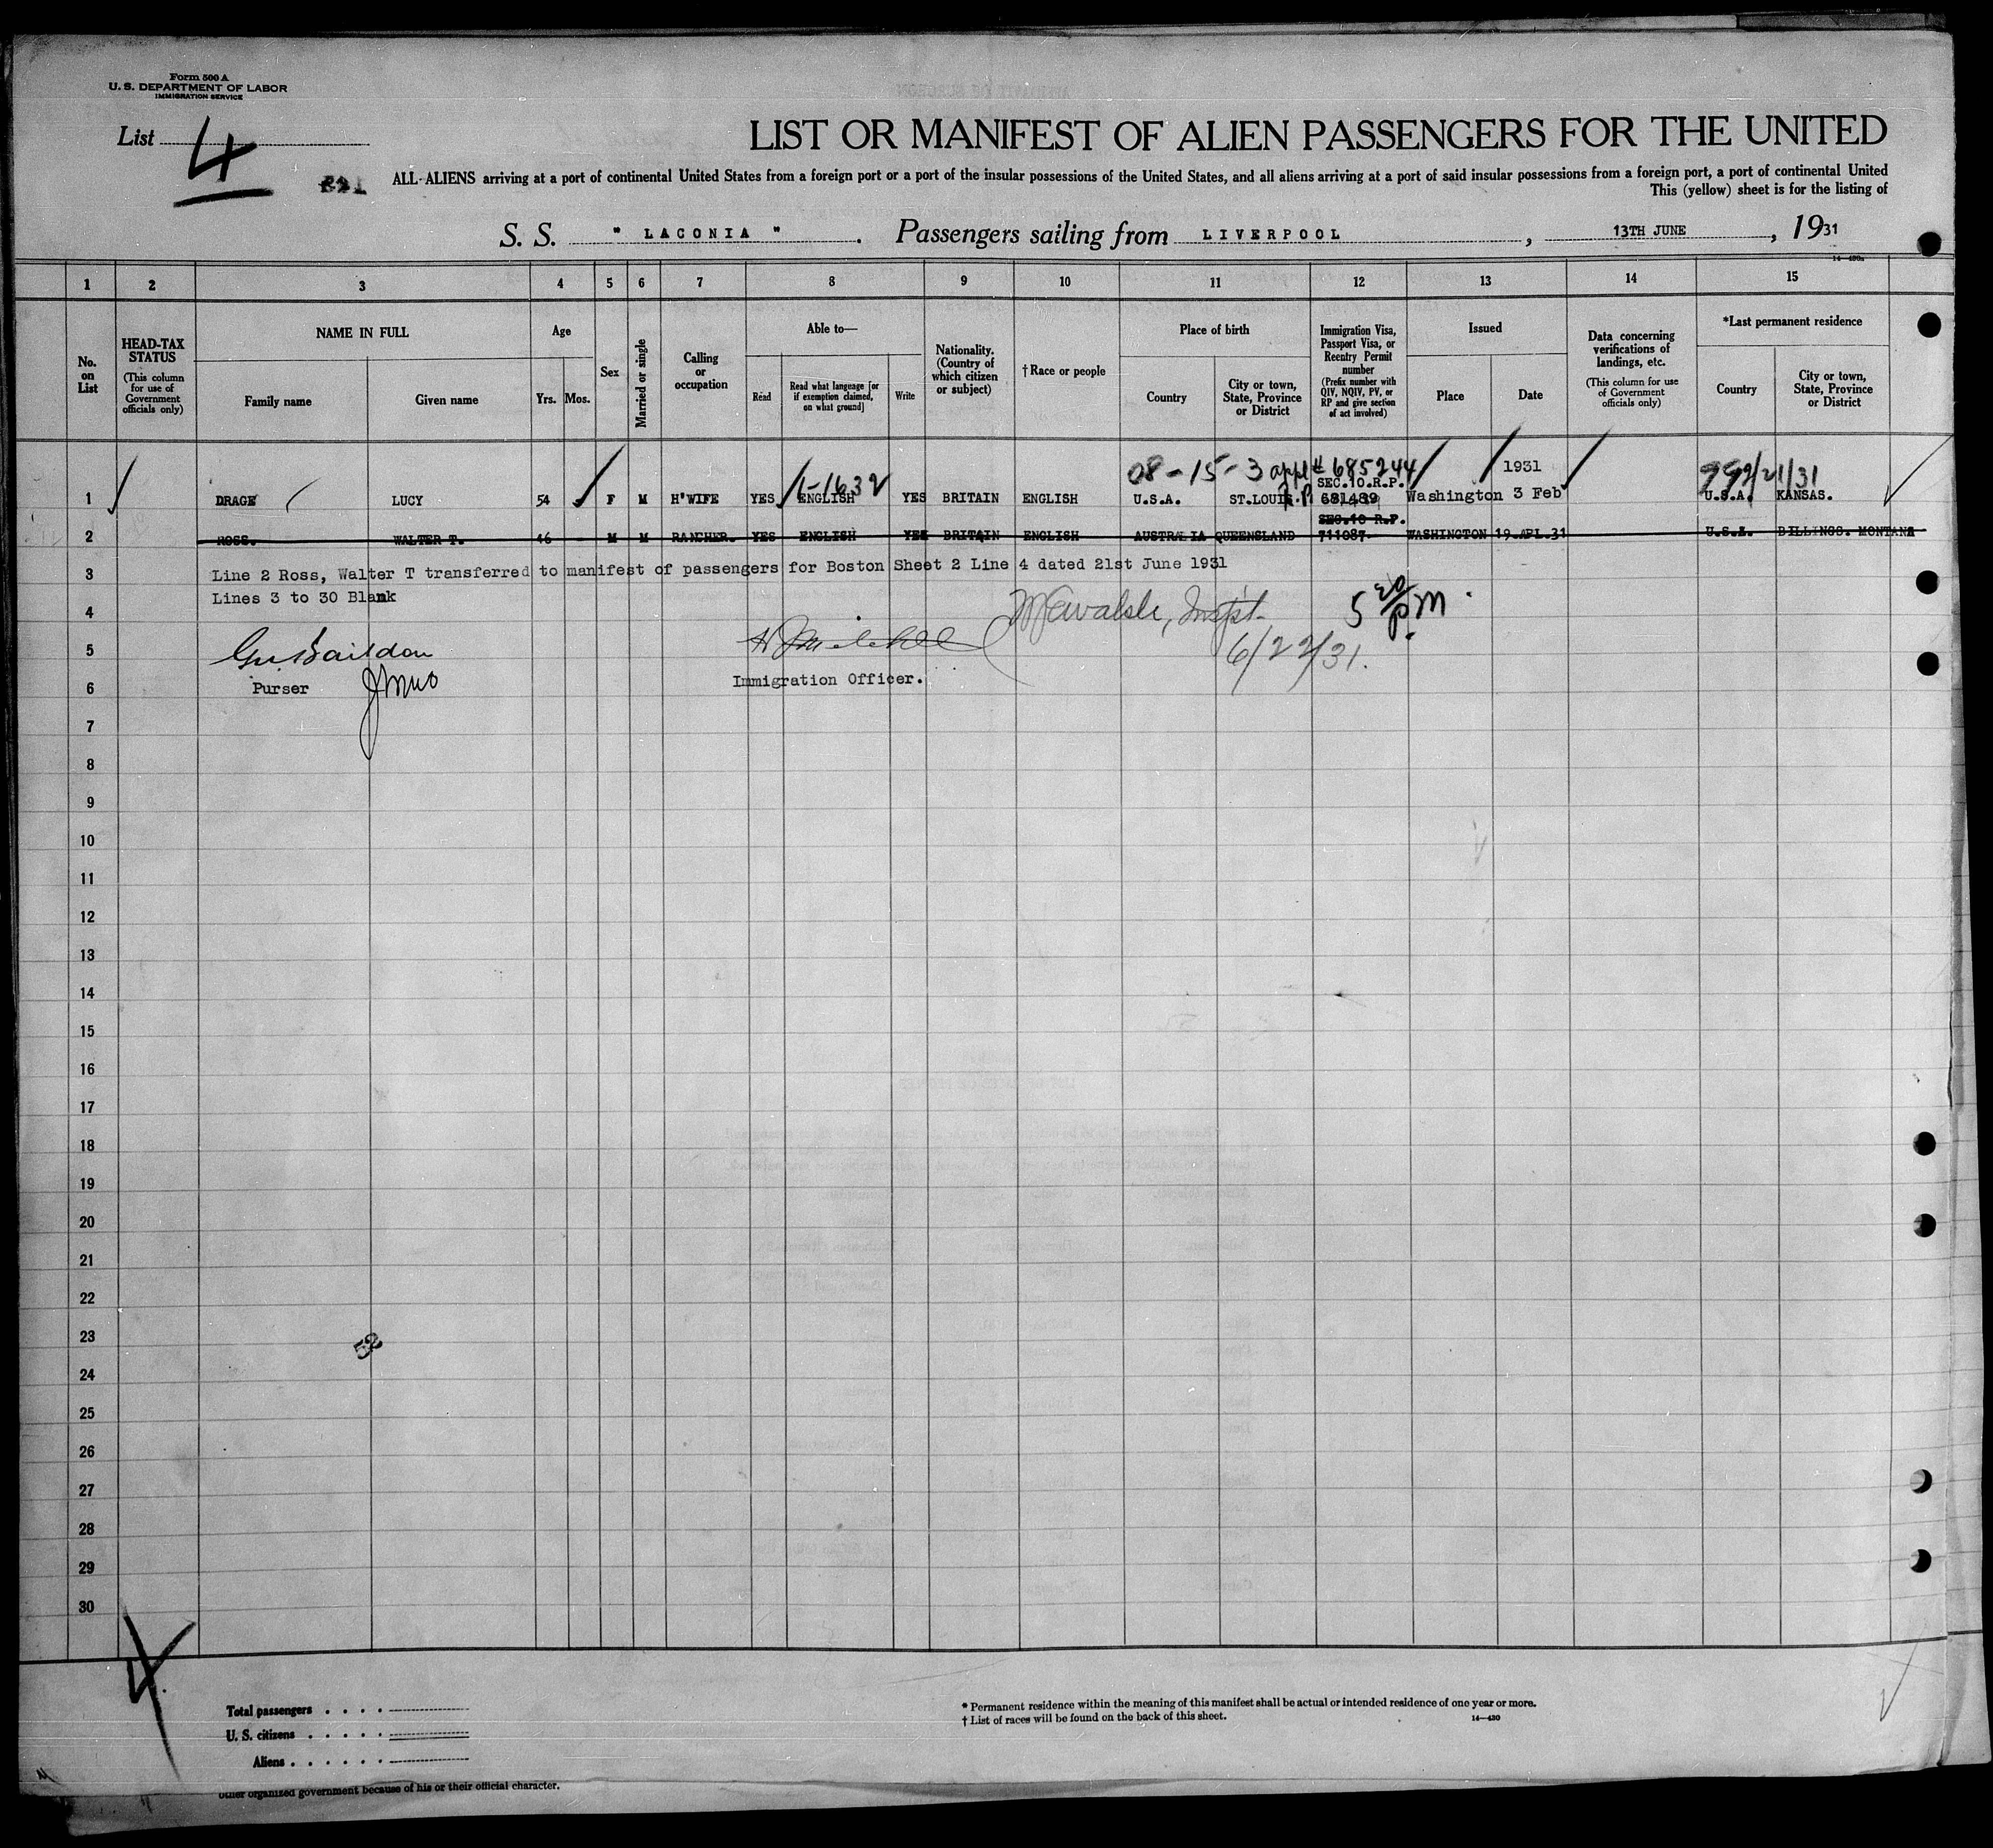 Form 500 A
U. S. DEPARTMENT OF LABOR
IMMIGRATION SERVICE
List 4
LIST OR MANIFEST OF ALIEN PASSENGERS FOR THE UNITED
ALL ALIENS arriving at a port of continental United States from a foreign port or a port of the insular possessions of the United States, and all aliens arriving at a port of said insular possessions from a foreign port, a port of continental United
This (yellow) sheet is for the listing of
S. S. " LACONIA " . Passengers sailing from LIVERPOOL , 13TH JUNE , 1931
1 2 3 4 5 6 7 8 9 10 11 12 13 14 15
No. on List
HEAD-TAX STATUS (This column for use of Government officials only)
NAME IN FULL
Family name Given name
Age
Yrs. Mos.
Sex
Married or single
Calling or occupation
Able to—
Read Read what language [or if exemption claimed, on what ground] Write
Nationality. (Country of which citizen or subject)
†Race or people
Place of birth
Country City or town, State, Province or District
Immigration Visa, Passport Visa, or Reentry Permit number (Prefix number with QIV, NQIV, PV, or RP and give section of act involved)
Issued
Place Date
Data concerning verifications of landings, etc. (This column for use of Government officials only)
*Last permanent residence
Country City or town, State, Province or District
08-15-3 appl # 685244 1931 /21/31
1-1632 SEC.10.R.P.
1 DRAGE LUCY 54 F M H'WIFE YES ENGLISH YES BRITAIN ENGLISH U.S.A. ST.LOUIS R.P. 681489 Washington 3 Feb U.S.A. KANSAS.
SEC.10 R.P.
2 ROSS. WALTER T. 46 M M RANCHER. YES ENGLISH YES BRITAIN ENGLISH AUSTRALIA QUEENSLAND 711087 WASHINGTON 19.APL.31 U.S.A. BILLINGS. MONTANA
3 Line 2 Ross, Walter T transferred to manifest of passengers for Boston Sheet 2 Line 4 dated 21st June 1931
Lines 3 to 30 Blank
4 Walsh, Inspt. 5 20 pm.
5 Baildon H Mitchell 6/22/31.
6 Purser Immigration Officer.
7
8
9
10
11
12
13
14
15
16
17
18
19
20
21
22
23
24
25
26
27
28
29
30
4
Total passengers . . . .
U. S. citizens . . . . .
Aliens . . . . . .
* Permanent residence within the meaning of this manifest shall be actual or intended residence of one year or more.
† List of races will be found on the back of this sheet.
14—430
other organized government because of his or their official character.